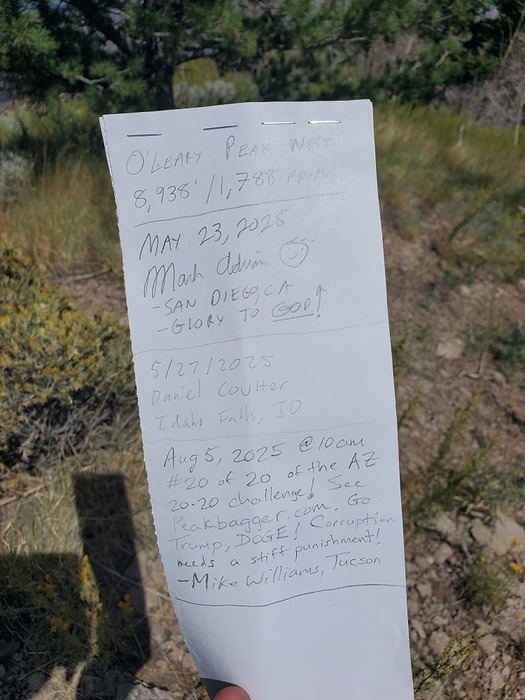 O'LEARY PEAK WEST
8,938' / 1,788 PROM
MAY 23, 2025
Mark Adrian
-SAN DIEGO, CA
-GLORY TO GOD!
5/27/2025
Daniel Coulter
Idaho Falls, ID
Aug 5, 2025 @ 10am
#20 of 20 of the AZ
20-20 challenge! See
Peakbagger.com. Go
Trump, DOGE! Corruption
needs a stiff punishment!
-Mike Williams, Tucson